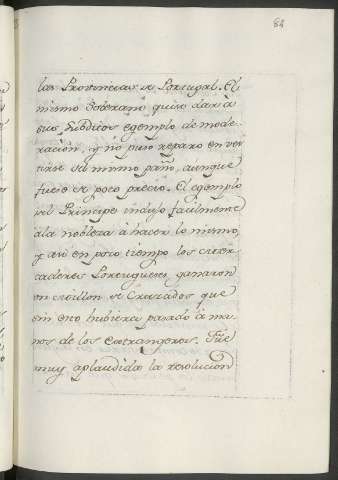 84
las Provincias de Portugal. El
mismo Soberano quiso dar à
sus Subditos egemplo de mode-
racion, y no puso reparo en ver
tirse del mismo paño, aunque
fuese de poco precio. El egemplo
del Principe indujo facilmente
à la nobleza à hacer lo mismo,
y asi en poco tiempo los Mer-
caderes Portugueses ganaron
un millon de Cruzados que
sin esto hubiera pasado à ma-
nos de los Extrangeros. Fue
muy aplaudida la resolucion